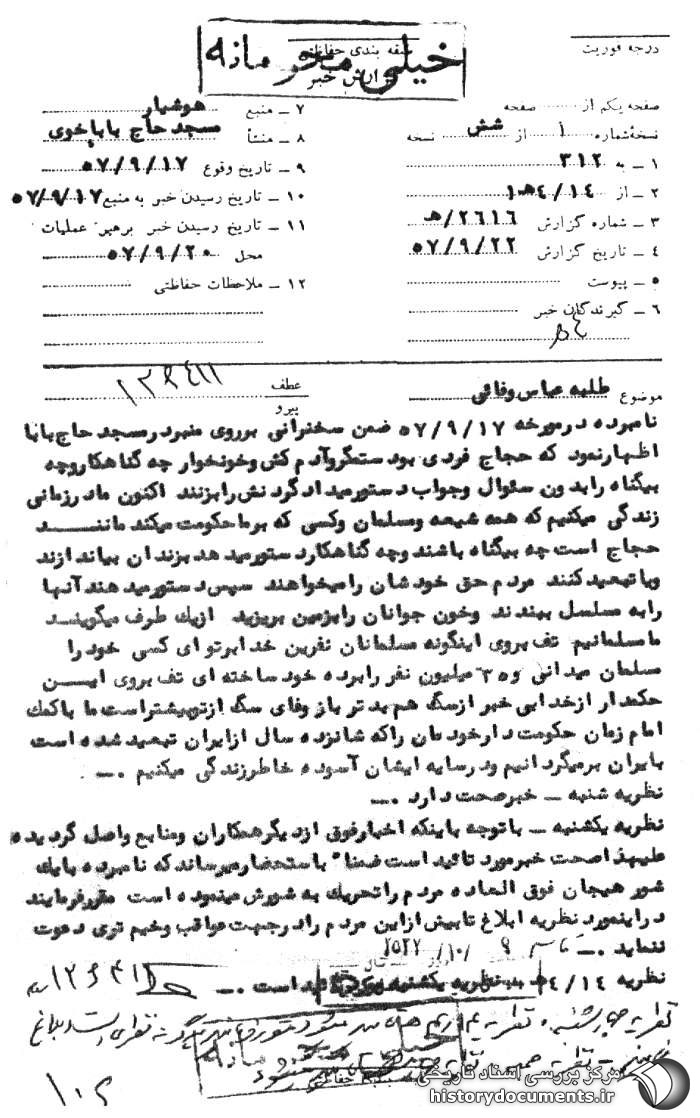 خیلی محرمانه
درجه فوریت
طبقه بندی حفاظتی
گزارش خبر
صفحه یکم از صفحه
نسخهٔ شماره ۱ از شش نسخه
۱ ـ به ۳۱۲
۲ ـ از ۱۰ه‍ ۴/۱۴
۳ ـ شماره گزارش ۲۶۱۶/ه‍
۴ ـ تاریخ گزارش ۵۷/۹/۲۲
۵ ـ پیوست
۶ ـ گیرندگان خبر
۷ ـ منبع هوشیار
۸ ـ منشأ مسجد حاج بابا خوی
۹ ـ تاریخ وقوع ۵۷/۹/۱۷
۱۰ ـ تاریخ رسیدن خبر به منبع ۵۷/۹/۱۷
۱۱ ـ تاریخ رسیدن خبر برهبر عملیات
محل ۵۷/۹/۲۰
۱۲ ـ ملاحظات حفاظتی
موضوع طلبه عباس وفائی
عطف
پیرو
نامبرده در مورخه ۵۷/۹/۱۷ ضمن سخنرانی بر روی منبر در مسجد حاج بابا
اظهار نمود که حجاج فردی بود ستمگر و آدم کش و خونخوار چه گناهکار و چه
بیگناه را بدون سئوال و جواب دستور میداد گردنش را بزنند اکنون ما در زمانی
زندگی میکنیم که همه شیعه و مسلمان و کسی که بر ما حکومت میکند ماننـــد
حجاج است چه بیگناه باشند و چه گناهکار دستور میدهد بزندان بیاندازند
و یا تبعید کنند مردم حق خودشان را میخواهند سپس دستور میدهند آنها
را به مسلسل ببندند و خون جوانان را بزمین بریزید از یك طرف میگوینـد
ما مسلمانیم تف بروی اینگونه مسلمانان نفرین خدا بر تو ای کسی خود را
مسلمان میدانی و ۳۵ میلیون نفر را برده خود ساخته ای تف بروی ایــن
حکمدار از خدا بی خبر از سگ هم بدتر باز وفای سگ از تو بیشتر است ما با کمك
امام زمان حکومت دار خودمان را که شانزده سال از ایران تبعید شده است
بایران برمیگردانیم و در سایه ایشان آسوده خاطر زندگی میکنیم .ــ
نظریه شنبه ـ خبر صحت دارد .ــ
نظریه یکشنبه ـ با توجه باینکه اخبار فوق از دیگر همکاران و منابع واصل گردیده
علیهذا صحت خبر مورد تائید است ضمنا" باستحضار میرساند که نامبرده با یك
شور هیجان فوق العاده مردم را تحریك به شورش مینموده است مقرر فرمایند
در اینمورد نظریه ابلاغ تا بیش از این مردم را در جهت عواقب وخیم تری دعوت
ننماید .ــ
نظریه ۴/۱۴ ه‍ ـ نظریه یکشنبه مورد تائید است .ــ
خیلی محرمانه
طبقه بندی حفاظتی
مرکز بررسی اسناد تاریخی
historydocuments.ir